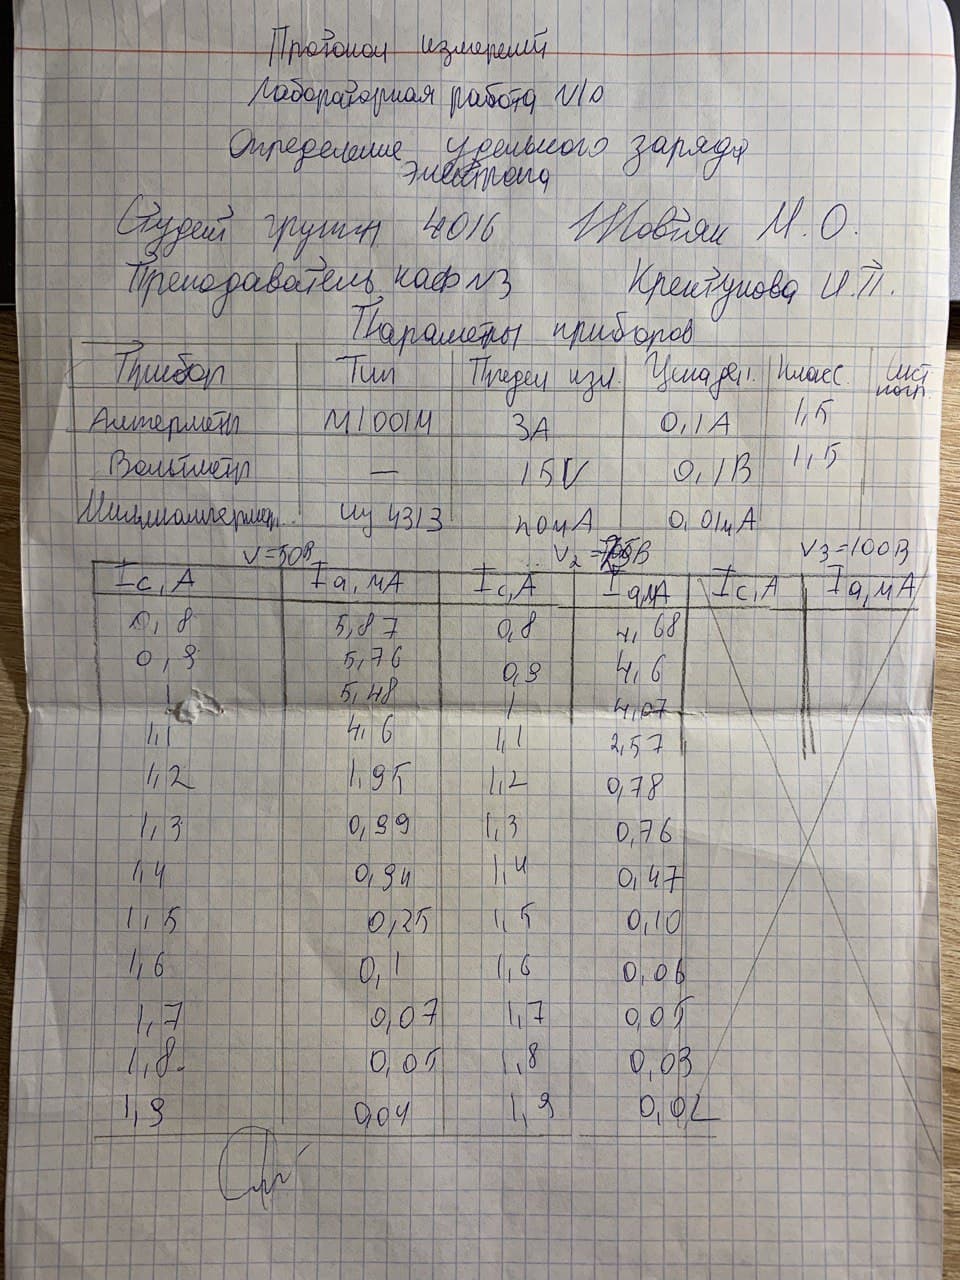 Протокол измерений
Лабораторная работа №10
Определение удельного заряда
электрона
Студент группы 4016 Жовтяк М. О.
Преподаватель каф №3 И.П.
Параметры приборов
Прибор Тип Предел изм. Цена дел. Класс. сист погр.
Амперметр М1001М 3А 0,1А 1,5
Вольтметр — 15V 0,1В 1,5
Миллиамперметр. 4313 0,01мА
V=50В V2= В V3=100В
Ic, А Ia, мА Ic, А Ia, мА Ic, А Ia, мА
0,8 5,87 0,8 4,68
0,9 5,76 0,9 4,6
1 5,48 1 4,07
1,1 4,6 1,1 2,57
1,2 1,95 1,2 0,78
1,3 0,99 1,3 0,76
1,4 0,94 1,4 0,47
1,5 0,25 1,5 0,10
1,6 0,1 1,6 0,06
1,7 0,07 1,7 0,05
1,8 0,05 1,8 0,03
1,9 0,04 1,9 0,02